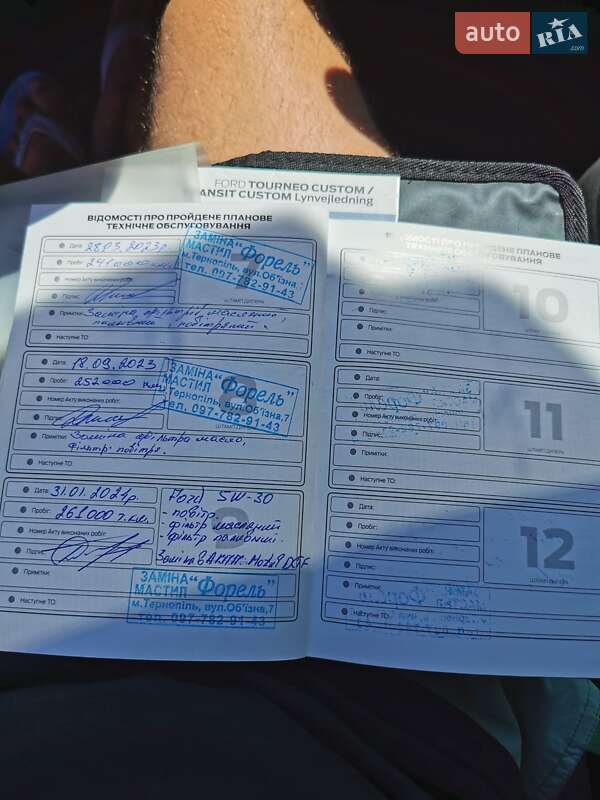 auto RIA .com
FORD TOURNEO CUSTOM /
ANSIT CUSTOM Lynvejledning
ВІДОМОСТІ ПРО ПРОЙДЕНЕ ПЛАНОВЕ
ТЕХНІЧНЕ ОБСЛУГОВУВАННЯ
Дата: 28.03.2023р.
Пробіг: 241000
Номер Акту виконаних робіт:
Підпис:
ШТАМП ДИЛЕРА
ЗАМІНА "Форель"
МАСТИЛ
м.Тернопіль, вул.Об'їзна,7
тел. 097-782-91-43
Примітки:
Наступне ТО:
Дата: 18.09.2023
Пробіг: 252000
Номер Акту виконаних робіт:
Підпис:
ШТАМП ДИЛЕРА
ЗАМІНА "Форель"
МАСТИЛ
м.Тернопіль, вул.Об'їзна,7
тел. 097-782-91-43
Примітки: Заміна фільтра масло,
фільтр повітря.
Наступне ТО:
Дата: 31.01.2024р.
Пробіг: 261000 т.км.
Номер Акту виконаних робіт:
Підпис:
Ford 5W-30
- повітр.
- фільтр масляний
- фільтр паливний.
Примітки:
ЗАМІНА "Форель"
МАСТИЛ
м.Тернопіль, вул.Об'їзна,7
тел. 097-782-91-43
Наступне ТО:
ВІДОМОСТІ ПРО ПРОЙДЕНЕ ПЛАНОВЕ
ТЕХНІЧНЕ ОБСЛУГОВУВАННЯ
10
Підпис:
ШТАМП ДИЛЕРА
Примітки:
Наступне ТО:
Дата:
Пробіг:
Номер Акту виконаних робіт:
11
Підпис:
ШТАМП ДИЛЕРА
Примітки:
Наступне ТО:
Дата:
Пробіг:
Номер Акту виконаних робіт:
12
Підпис:
ШТАМП ДИЛЕРА
Примітки:
Наступне ТО: